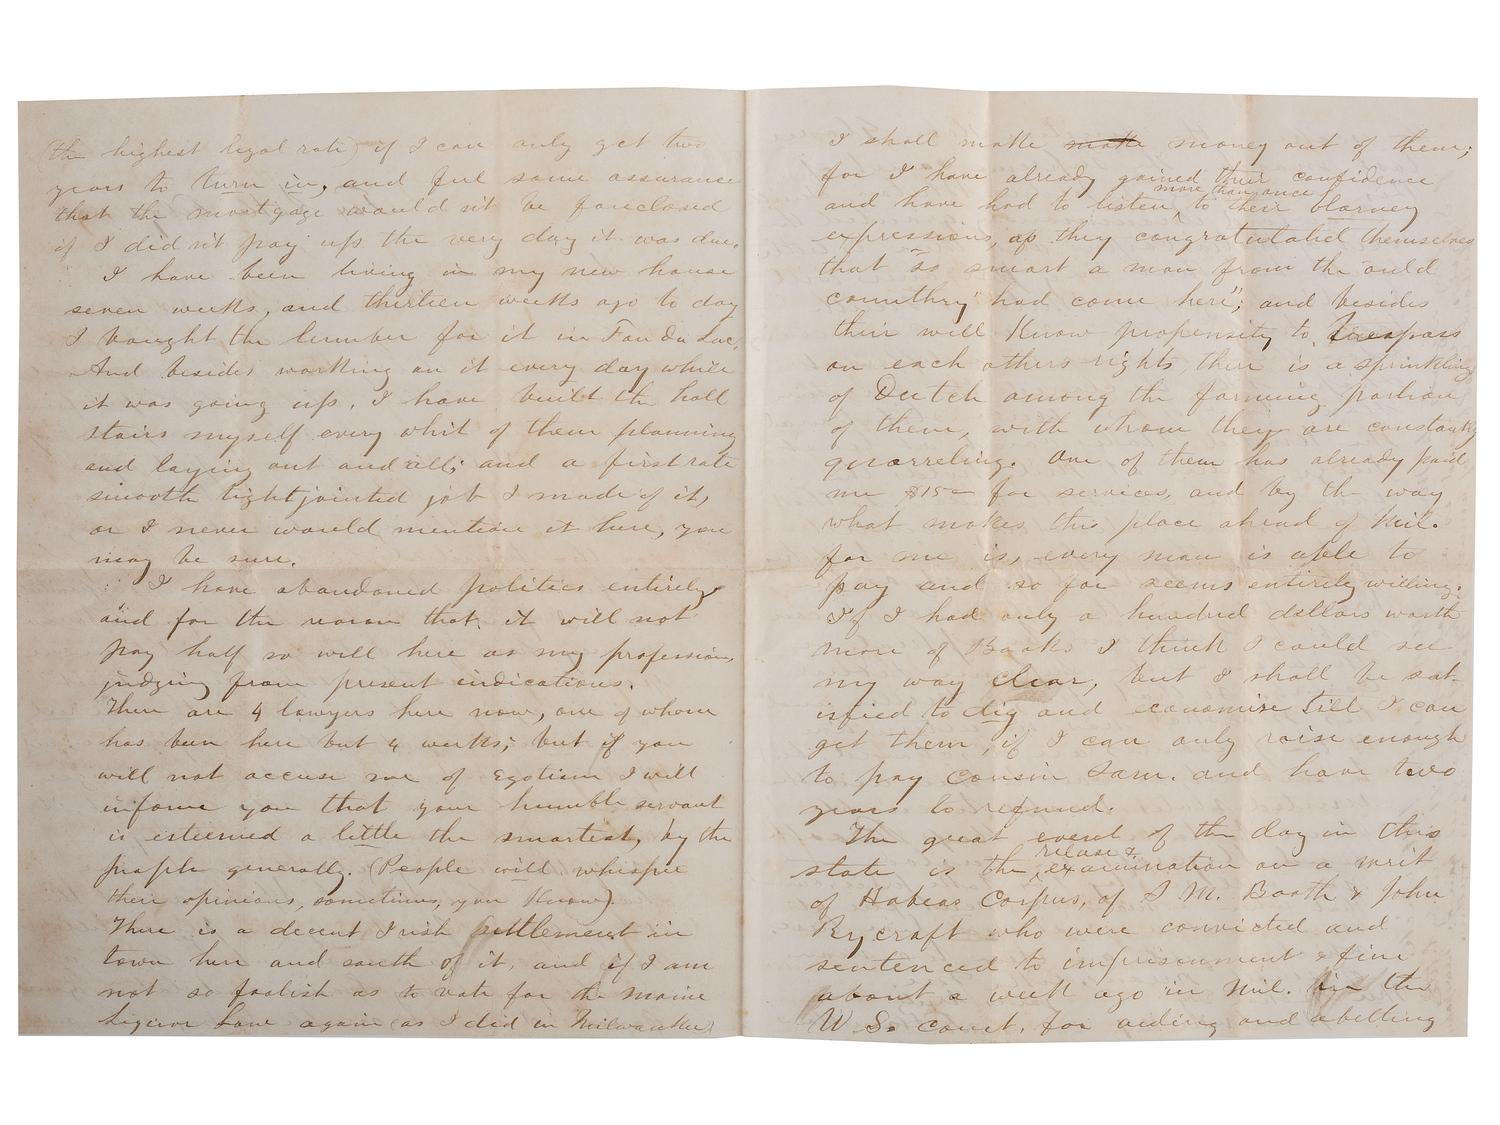 (the highest legal rate) if I can only get two
years to turn in, and feel some assurance
that the mortgage would n't be foreclosed
if I did n't pay up the very day it was due.
I have been living in my new house
seven weeks, and thirteen weeks ago to day
I bought the lumber for it in Fon du Lac.
And besides working on it every day while
it was going up, I have built the hall
stairs myself every whit of them planning
and laying out and all; and a first rate
smooth tight jointed job I made of it,
or I never would mention it here, you
may be sure.
I have abandoned politics entirely
and for the reason that, it will not
pay half so well here as my profession,
judging from present indications.
There are 4 lawyers here now, one of whom
has been here but 4 weeks; but if you
will not accuse me of Egotism I will
inform you that your humble servant
is esteemed a little the smartest, by the
people generally. (People will whisper
their opinions, sometimes, you know).
There is a decent Irish settlement in
town here and south of it, and if I am
not so foolish as to vote for the Maine
Liquor Law again (as I did in Milwaukee)
I shall make make money out of them;
for I have already gained their confidence
and have had to listen more than once to their blarney
expressions, as they congratutated themselves
that "so smart a man from the ould
counthry had come here"; and besides
their well know propensity to trespass
on each others rights, there is a sprinkling
of Dutch among the farming portion
of them, with whom they are constantly
quarreling. One of them has already paid
me $15 for services, and by the way
what makes this place ahead of Mil.
for me is, every man is able to
pay and so far seems entirely willing.
If I had only a hundred dollars worth
more of Books I think I could see
my way clear, but I shall be sat-
isfied to dig and economise till I can
get them, if I can only raise enough
to pay cousin Sam. and have two
years to refund.
The great event of the day in this
state is the release & examination on a writ
of Habeas Corpus, of S. M. Booth & John
Rycraft who were convicted and
sentenced to imprisonment & fine
about a week ago in Mil. in the
U. S. court, for aiding and abetting